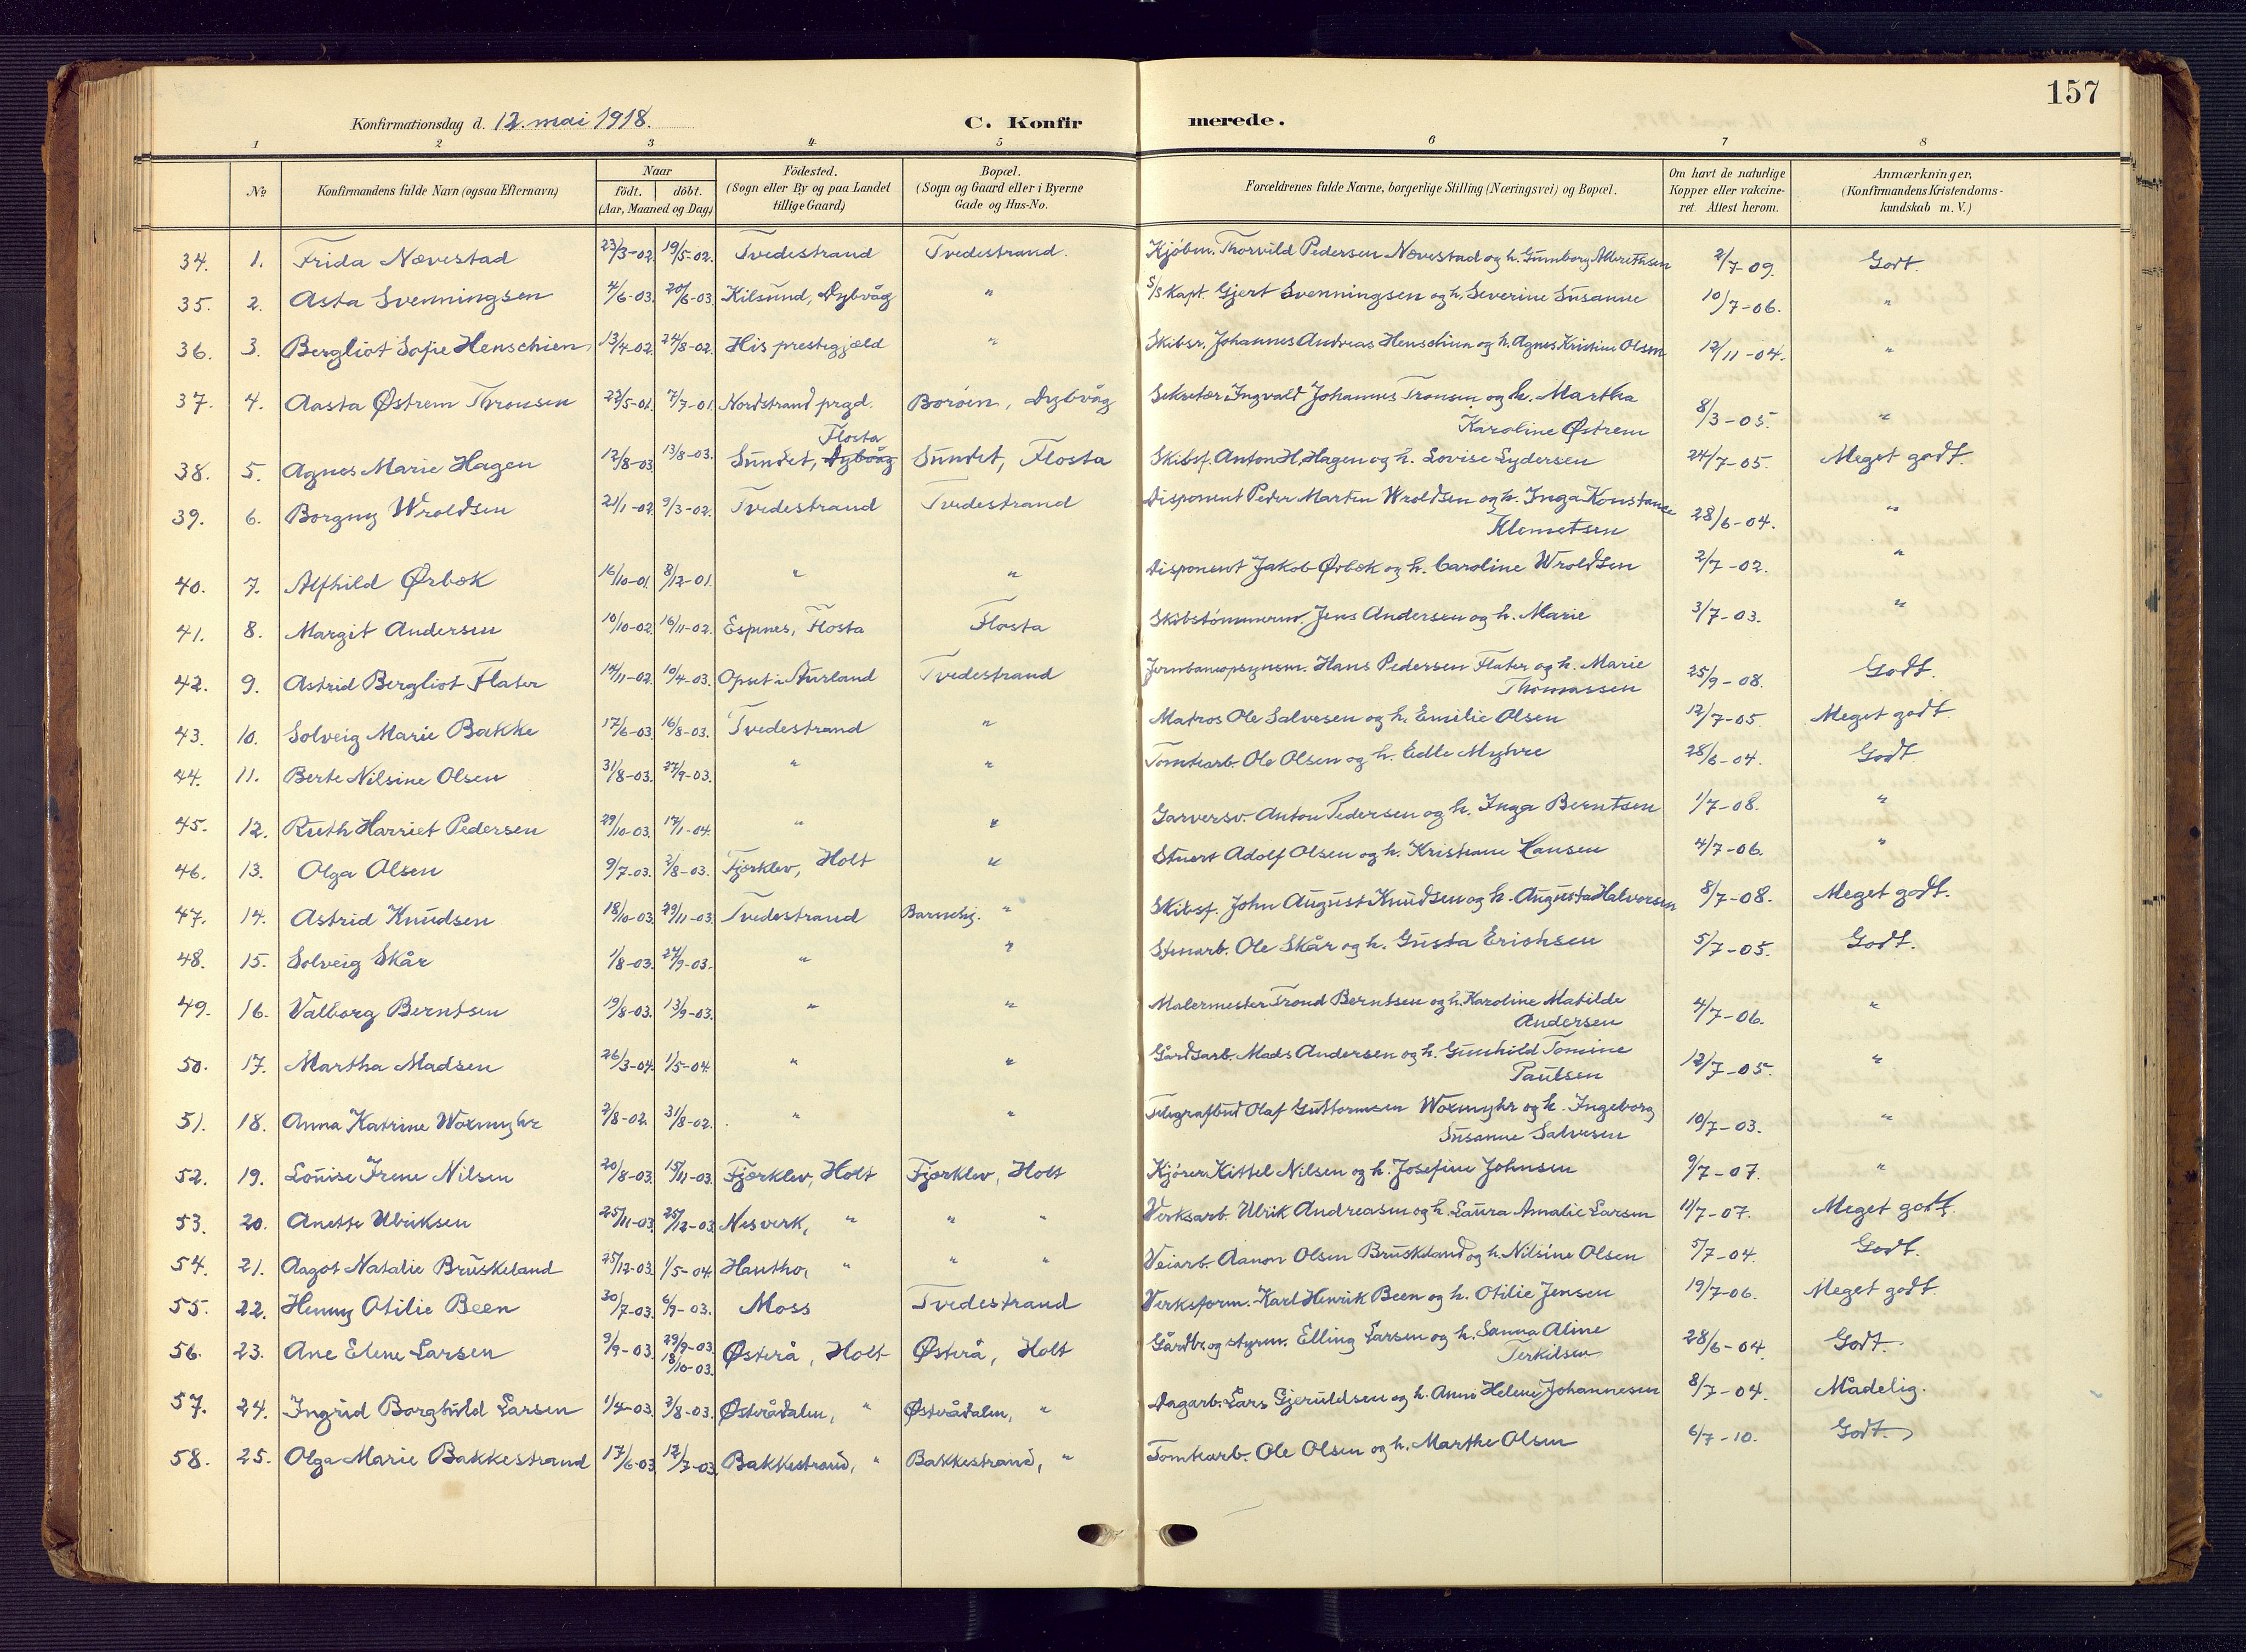 157
Konfirmationsdag d. 12. mai 1918. C. Konfirmerede.
1 2 3 4 5 6 7 8
№ Konfirmandens fulde Navn (ogsaa Efternavn) Naar født. døbt. (Aar, Maaned og Dag) Fødested. (Sogn eller By og paa Landet tillige Gaard) Bopæl. (Sogn og Gaard eller i Byerne Gade og Hus-No. Forældrenes fulde Navne, borgerlige Stilling (Næringsvei) og Bopæl. Om havt de naturlige Kopper eller vakcineret. Attest herom. Anmærkninger. (Konfirmandens Kristendomskundskab m. V.)
34. 1. Frida Nævestad 23/3-02. 19/5-02. Tvedestrand Tvedestrand. Kjøbm. Thorvild Pedersen Nævestad og h. Gunnborg Albrethsen 2/7-09. Godt.
35. 2. Asta Svenningsen 4/6-03. 20/6-03. Kilsund, Dybvåg " S/S Kapt. Gjert Svenningsen og h. Severine Susanne 10/7-06. "
36. 3. Bergliot Sofie Henschien 13/4-02. 24/8-02. His prestegjæld " Skibsr. Johannes Andreas Henschien og h. Agnes Kristine Olsen 12/11-04. "
37. 4. Aasta Østrem Thronsen 22/5-01. 7/7-01. Nordstrand prgd. Borøen, Dybvåg Sekretær Ingvald Johannes Tronsen og h. Martha
Karoline Østrem 8/3-05. "
38. 5. Agnes Marie Hagen 12/8-03 13/8-03. Sundet, Dybvåg Flosta Sundet, Flosta Skibsf. Anton H. Hagen og h. Lovise Lydersen 24/7-05. Meget godt.
39. 6. Borgny Wroldsen 21/1-02. 9/3-02. Tvedestrand Tvedestrand Disponent Peder Martin Wroldsen og h. Inga Konstance
Klemetsen 28/6-04. "
40. 7. Alfhild Ørbæk 16/10-01. 8/12-01. " " Disponent Jakob Ørbæk og h. Caroline Wroldsen 2/7-02. "
41. 8. Margit Andersen 10/10-02. 16/11-02. Espenes, Flosta Flosta Skibstømmerm. Jens Andersen og h. Marie 3/7-03. "
42. 9. Astrid Bergliot Flater 14/11-02. 10/4-03. Opset i Aurland Tvedestrand Jernbaneopsynsm. Hans Pedersen Flater og h. Marie
Thomassen 25/9-08. Godt.
43. 10. Solveig Marie Bakke 17/6-03. 16/8-03. Tvedestrand " Matros Ole Salvesen og h. Emilie Olsen 12/7-05. Meget godt.
44. 11. Berte Nilsine Olsen 31/8-03. 27/9-03. " " Tomtearb. Ole Olsen og h. Edle Myhre 28/6-04. Godt.
45. 12. Ruth Harriet Pedersen 29/10-03. 17/1-04. " " Garversv. Anton Pedersen og h. Inga Berntsen 1/7-08. "
46. 13. Olga Olsen 9/7-03. 2/8-03. Fjærklev, Holt " Stuert Adolf Olsen og h. Kristiane Hansen 4/7-06. "
47. 14. Astrid Knudsen 18/10-03. 29/11-03. Tvedestrand " Skibsf. John August Knudsen og h. Augusta Halvorsen 8/7-08. Meget godt.
48. 15. Solveig Skår 1/8-03. 27/9-03. " " Stenarb. Ole Skår og h. Gusta Erichsen 5/7-05. Godt.
49. 16. Valborg Berntsen 19/8-03. 13/9-03. " " Malermester Trond Berntsen og h. Karoline Matilde
Andersen 4/7-06. "
50. 17. Martha Madsen 26/3-04. 1/5-04. " " Gårdsarb. Mads Andersen og h. Gunhild Tomine
Paulsen 12/7-05. "
51. 18. Anna Katrine Woxmyhr 2/8-02. 31/8-02. " " Telegrafbud Olaf Guttormsen Woxmyhr og h. Ingeborg
Susanne Salvesen 10/7-03. "
52. 19. Louise Irene Nilsen 20/8-03. 15/11-03. Fjærklev, Holt Fjærklev, Holt Kjører Kittel Nilsen og h. Josefine Johnsen 9/7-07. "
53. 20. Anette Ulriksen 25/11-03. 25/12-03. Nesverk, " " " Verksarb. Ulrik Andreasen og h. Laura Amalie Larsen 11/7-07. Meget godt.
54. 21. Aagot Natalie Bruskeland 25/12-03. 1/5-04. " " " Veiarb. Aanon Olsen Bruskeland og h. Nilsine Olsen 5/7-04. Godt.
55. 22. Henny Otilie Been 30/7-03. 6/9-03. Moss Tvedestrand Verksform. Karl Henrik Been og h. Otilie Jensen 19/7-06. Meget godt.
56. 23. Ane Elene Larsen 9/9-03. 29/9-03. 18/10-03. Østerå, Holt Østerå, Holt Gårdbr. og styrm. Elling Larsen og h. Sanna Aline
Terkilsen 28/6-04. Godt.
57. 24. Ingrid Borghild Larsen 1/4-03. 2/8-03. Østerådalen, " Østerådalen, " Dagarb. Lars Gjeruldsen og h. Anne Helene Johannesen 8/7-04. Mådelig.
58. 25. Olga Marie Bakkestrand 17/6-03. 12/7-03. Bakkestrand, " Bakkestrand, " Tomtearb. Ole Olsen og h. Marthe Olsen 6/7-10. Godt.